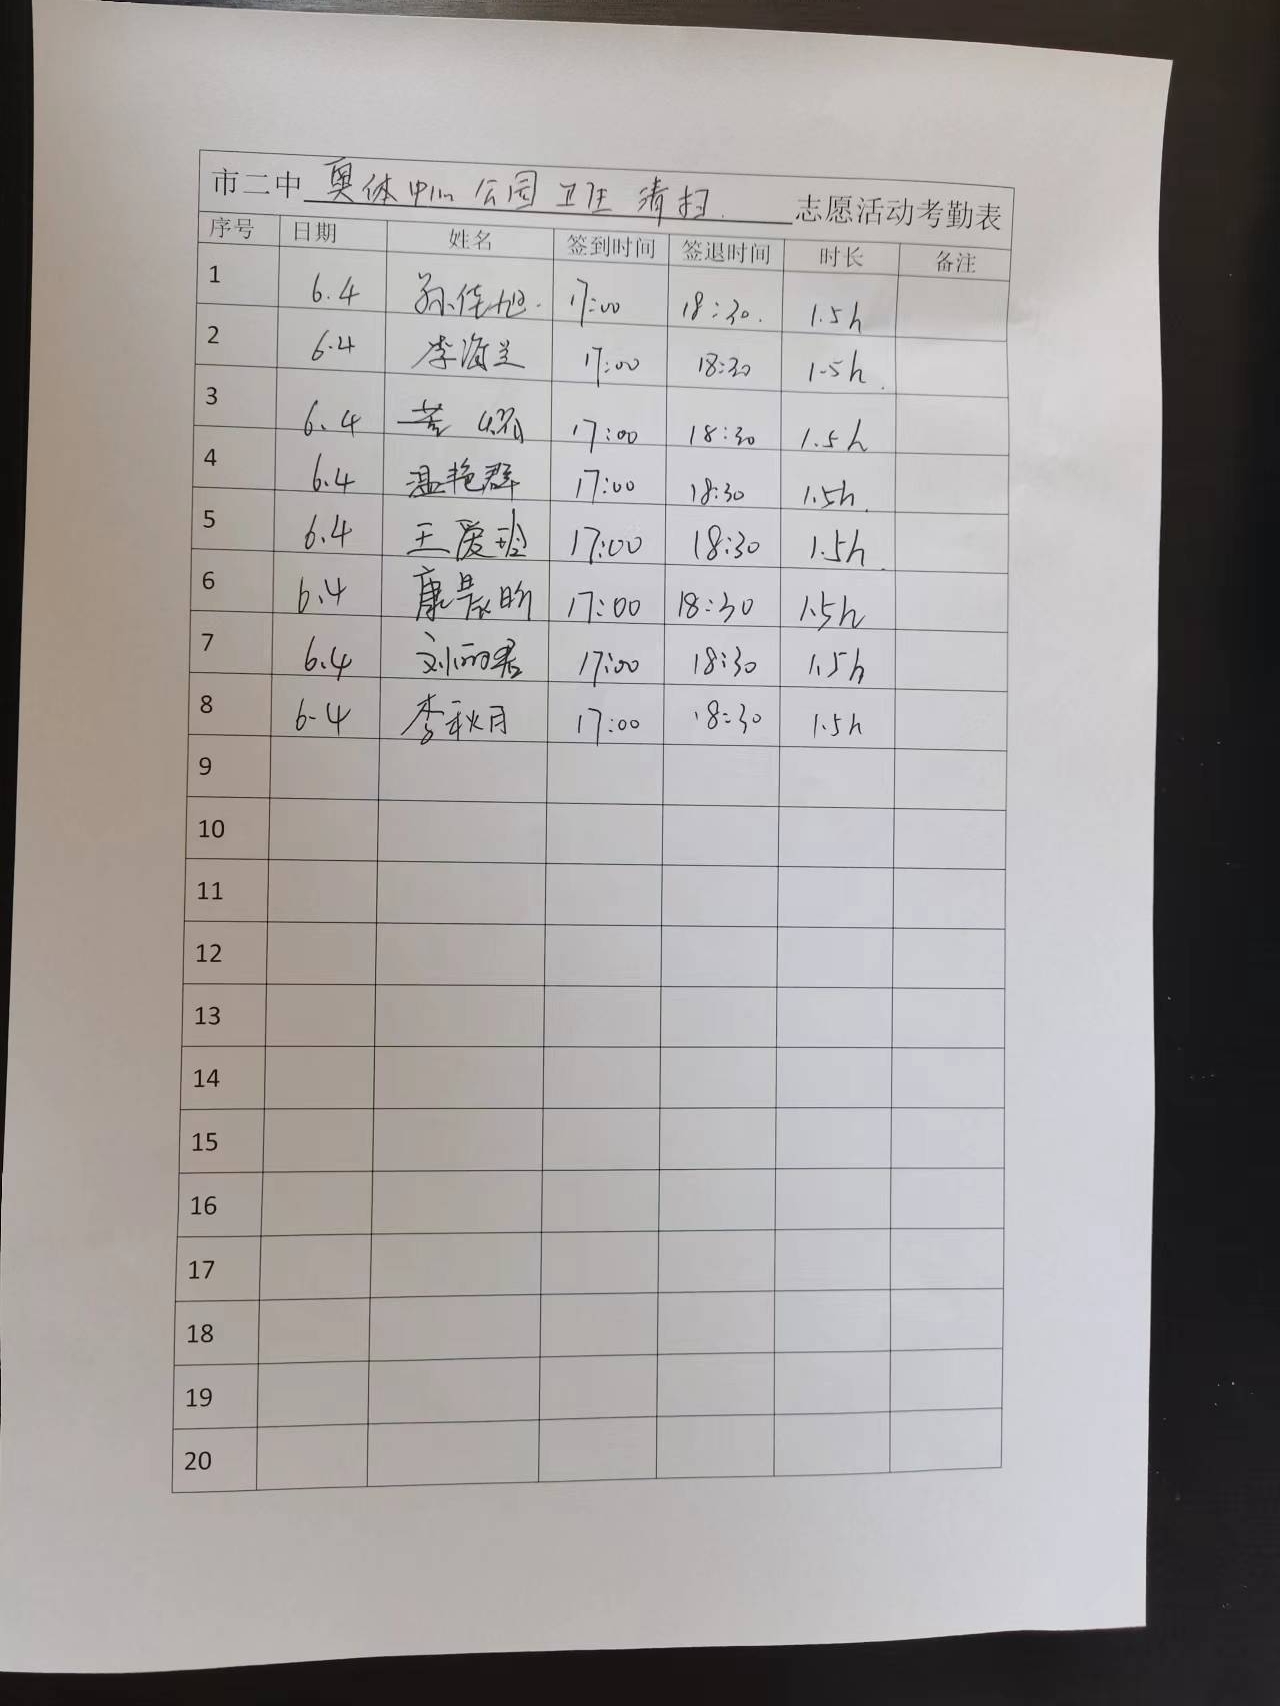 市二中 奥体中心公园卫生清扫 志愿活动考勤表
序号 日期 姓名 签到时间 签退时间 时长 备注
1 6.4 孙佳旭 17:00 18:30. 1.5h
2 6.4 李海兰 17:00 18:30 1.5h.
3 6.4 17:00 18:30 1.5h
4 6.4 温艳群 17:00 18:30 1.5h.
5 6.4 王爱玲 17:00 18:30 1.5h.
6 6.4 康晨昕 17:00 18:30 1.5h
7 6.4 刘丽君 17:00 18:30 1.5h
8 6-4 李秋月 17:00 18:30 1.5h
9
10
11
12
13
14
15
16
17
18
19
20